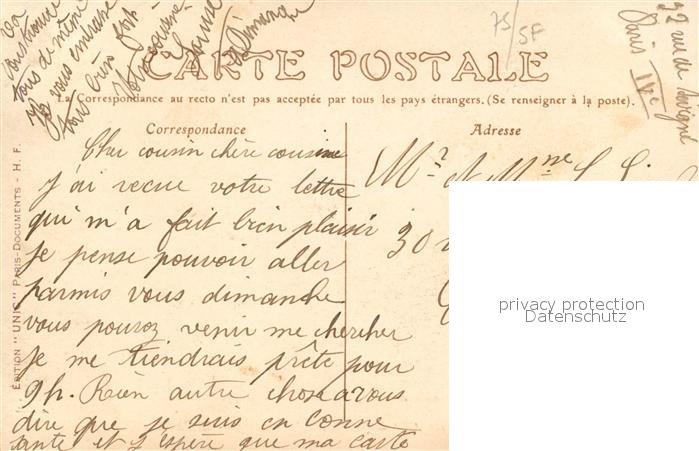 75/5F
CARTE POSTALE
La Correspondance au recto n'est pas acceptée par tous les pays étrangers. (Se renseigner à la poste).
Correspondance
Cher cousin chère cousine
j'ai recue votre lettre
qui m'a fait bien plaisir
je pense pouvoir aller
parmis vous dimanche
vous pouvez venir me chercher
je me tiendrais prête pour
9h. Rien autre chose a vous
dire que je suis en bonne
sante et j'espère que ma carte
vous
tous de même
Je vous embrasse
tous bien fort
Votre cousine
à Dimanche
Adresse
Mr et Mme
30
Paris IVe
EDITION "UNIC" PARIS-DOCUMENTS - H. F.
privacy protection
Datenschutz